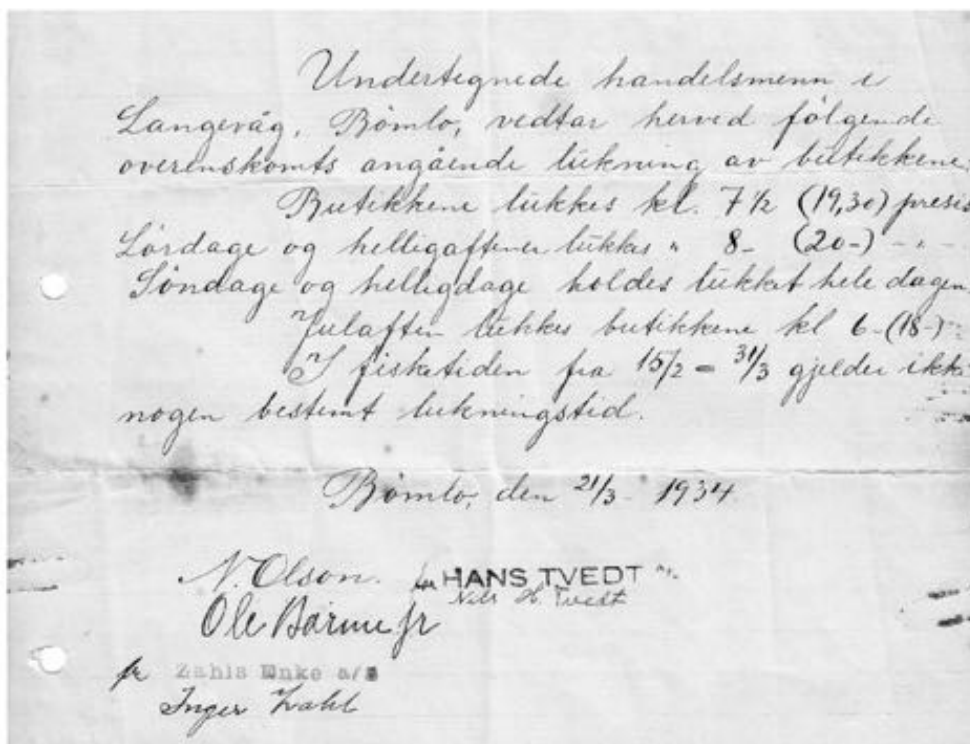 Undertegnede handelsmenn i
Langevåg, Bømlo, vedtar herved følgende
overenskomts angående lukning av butikkene.
Butikkene lukkes kl. 7 1/2 (19,30) presis
Lørdage og helligaftener lukkes " 8- (20-) - " -
Søndage og helligdage holdes lukket hele dagen.
Julaften lukkes butikkene kl 6-(18-)
I fisketiden fra 15/2 - 31/3 gjelder ikke
nogen bestemt lukningstid.
Bømlo, den 21/3 - 1934
N. Olson. for HANS TVEDT
Nils H. Tvedt
Ole Barme jr
pr Zahls Enke a/s
Inger Zahl